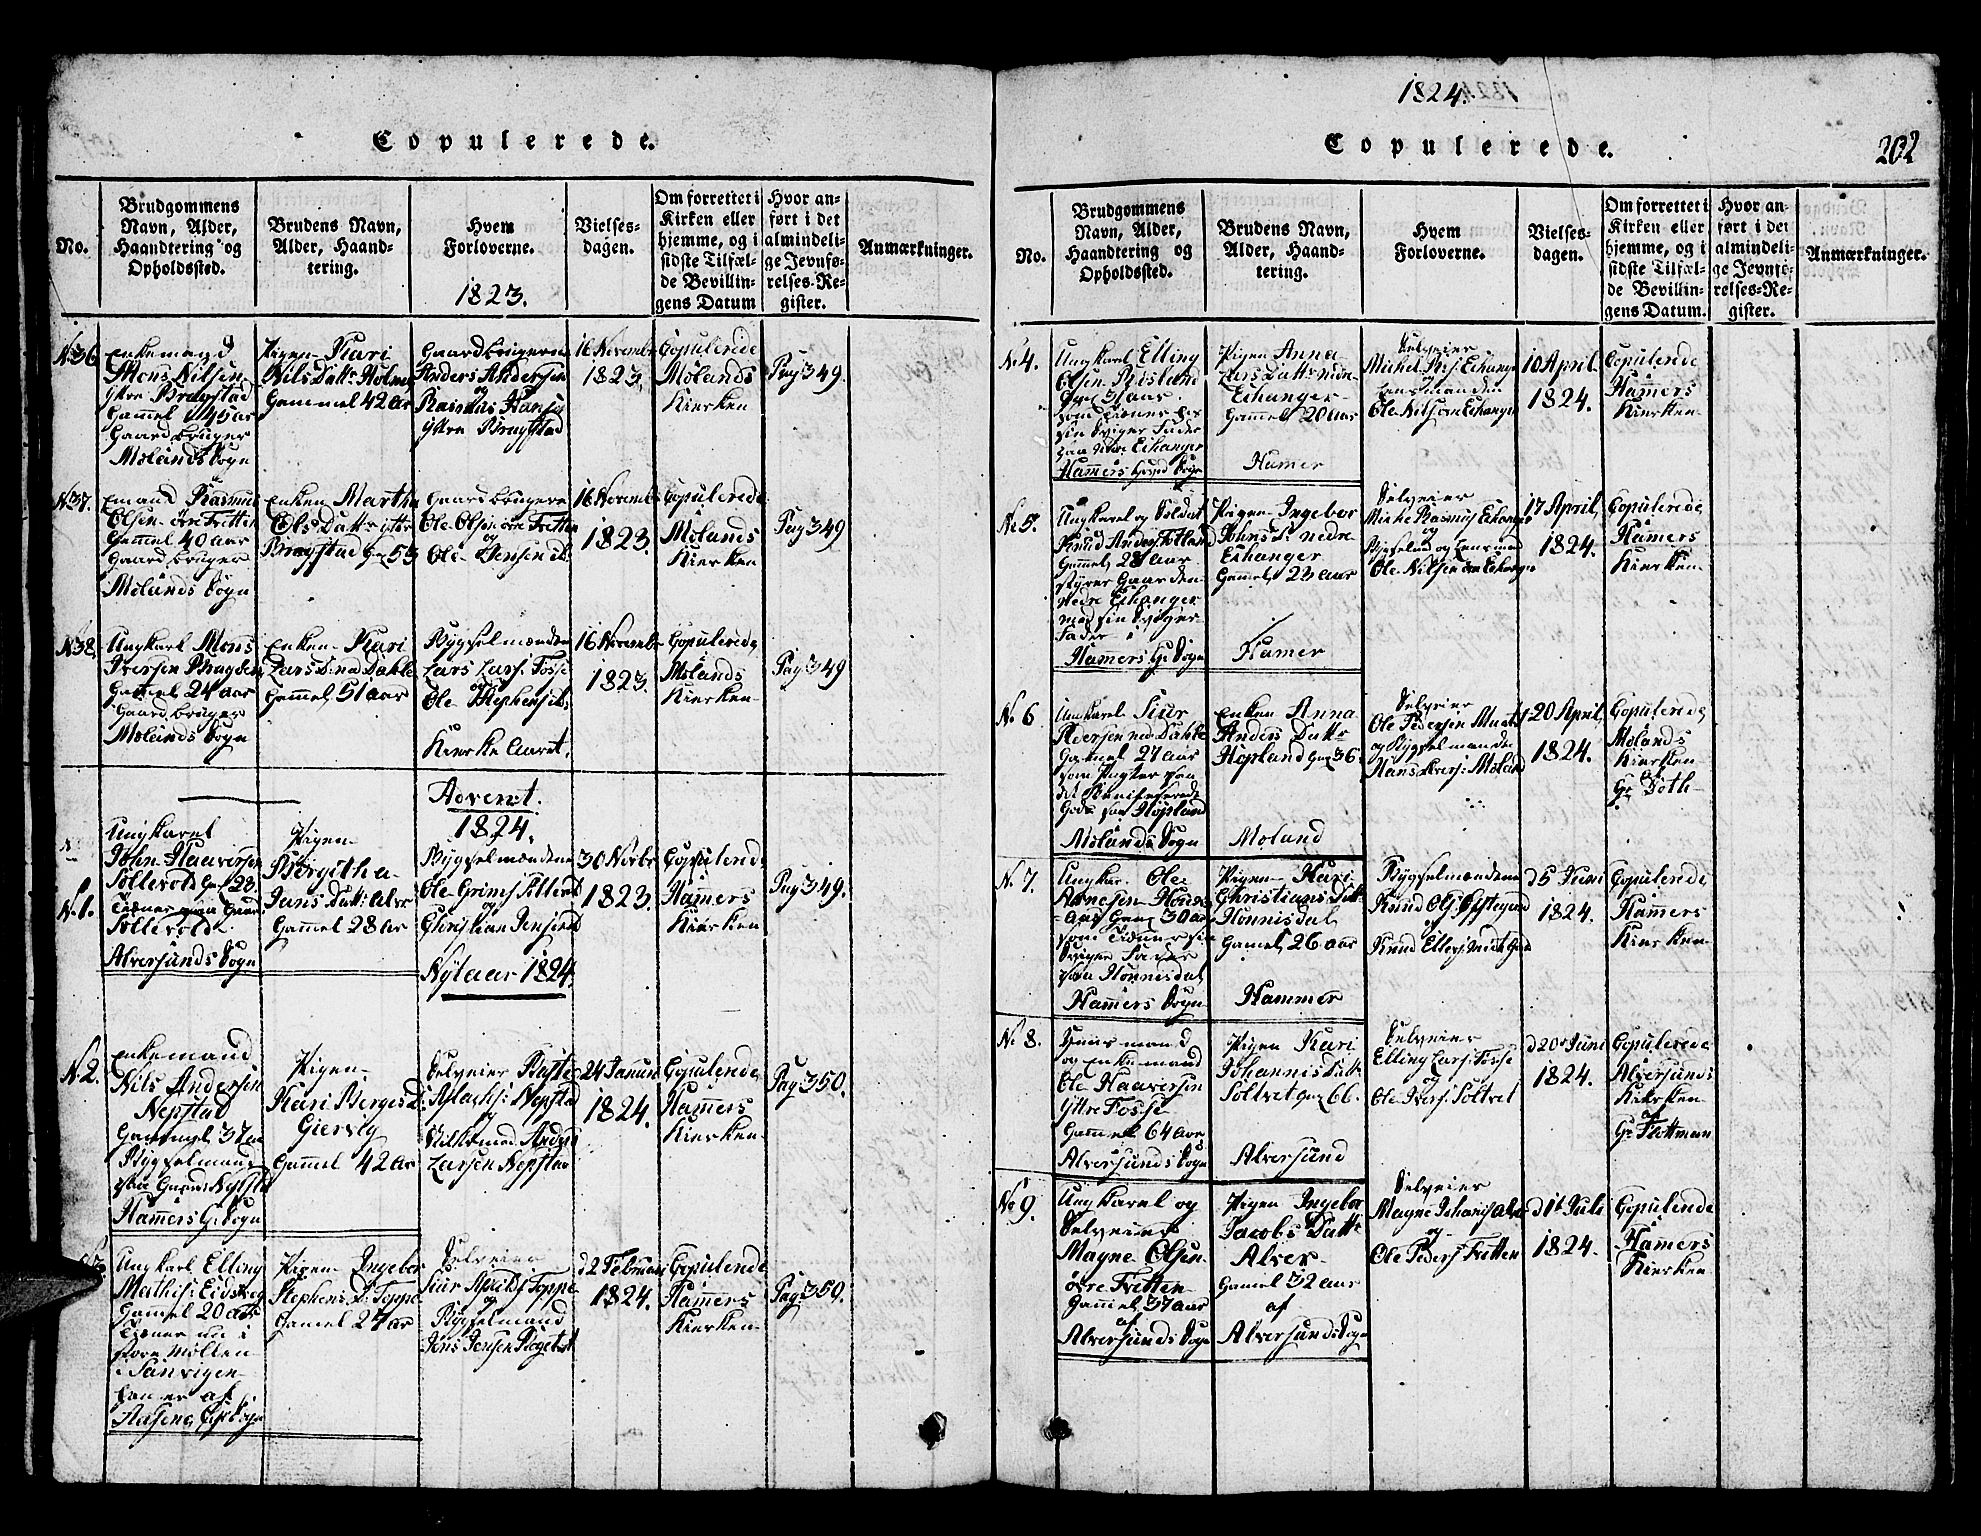 1824.
Copulerede.
Copulerede.
202
No.
Brudgommens
Navn, Alder,
Haandtering og
Opholdssted.
Brudens Navn,
Alder, Haand-
tering.
Hvem
Forloverne.
1823.
Vielses-
dagen.
Om forrettet i
Kirken eller
hjemme, og i
sidste Tilfæl-
de Bevillin-
gens Datum
Hvor an-
ført i det
almindeli-
ge Jevnfø-
relses-Re-
gister.
Anmærkninger.
N.36
Enkemand
Mons Nilsen
Ytre Bragstad
Gammel 45 aar
Gaardbruger
Molands Sogn
Pigen Kari
Nils Datr Holme
Gammel 42 ar
Gaardbrugerne
Anders Andersen
og
Rasmus Hansen
Ytre Bragstad
16 Novembr
1823.
Copulerede
Molands
Kierken
Pag 349.
N.37.
Emand Rasmus
Olsen øvre Fretten
Gammel 40 aar
Gaardbruger
Molands Sogn
Enken Martha
Ols Datr ytre
Bragstad G 55
Gaardbrugere
Ole Olsen øvre Fretten
og
Ole Jensen
16 Novembr
1823.
Copulerede
Molands
Kierken
Pag 349
N.38.
Ungkarl Mons
Iversen
Gammel 24 aar
Gaardbruger
Molands Sogn
Enken Kari
Lars D. ned Dahle
Gammel 51 aar
Bygselmændene
Lars Lars: Fosse
og
Ole
Kierke Aaret.
16 Novembr
1823.
Copulerede
Molands
Kierken
Pag 349
Advent.
1824.
N.1.
Ungkarl
John Haaversen
Solltvedt 28.
Tiener paa Gaard
Alversunds Sogn
Pigen
Børgitha
Jans Datr Alver
Gammel 28 ar
Bygselmændene
Ole Grims:
og
Christian Jensen
30 Novbr
1823.
Copulerede
Hammers
Kierken
Pag 349.
Nytaar 1824.
N.2.
Enkemand
Nils Andersen
Nepstad
Gammel 37
Bygselmand
paa Gaard
Hammers G. Sogn
Pigen
Kari Berges D.
Giervig
Gammel 42 ar
Selveier
Nepstad
og
Anders
Larsen Nepstad
24 Januar
1824.
Copulerede
Hammers
Kierken
Pag 350.
Ungkarl Elling
Mathis: Eidsvig
Gammel 20 aar
Tiener nu i
store Møllen
i Sanvigen
han er af
Pigen Ingebor
Stephens D. Toppe
Gammel 27 ar
Selveier
Siur Toppe
og
Bygselmand
Jens Jensen
d 2 Februar
1824.
Copulerede
Hammers
Kierken
Pag 350.
No.
Brudgommens
Navn, Alder,
Haandtering og
Opholdssted.
Brudens Navn,
Alder, Haand-
tering.
Hvem
Forloverne.
Vielses-
dagen.
Om forrettet i
Kirken eller
hjemme, og i
sidste Tilfæl-
de Bevillin-
gens Datum.
Hvor an-
ført i det
almindeli-
ge Jevnfø-
relses-Re-
gister.
Anmærkninger.
No 4.
Ungkarl Elling
Olsen Risland
31 aar.
som Tiener hos
sin Sviger Fader
paa Nedre Eikanger
Hammers Sogn
Pigen Anna
Lars Datr nedre
Eikanger
Gammel 20 aar
Hamer
Selveier
Michel Eikanger
Lensmanden
Ole Nilsen Eikanger
10 April
1824.
Copulerede
Hammers
Kierken
No 5.
Ungkarl og Soldat
Knud Anders: Totland
Gammel 28 aar
styrer Gaarden
Nedre Eikanger
med sin Sviger
Fader i
Hammers G. Sogn
Pigen Ingebor
Johns D. nedre
Eikanger
Gammel 23 aar
Hamer
Selveier
Michel Rasmus Eikanger
og
Ole Nilsen Eikanger
17 April,
1824.
Copulerede
Hamers
Kierken
No 6
Ungkarl Siur
Iversen ned Dahle
Gammel 27 aar
som Pagter paa
det Beneficerede
Gods paa Hopland
Molands Sogn
Enken Anna
Anders Datr
Hopland G 36
Moland
Selveier
Ole Pedersen
og Bygselmanden
Hans Moland
20 April,
1824.
Copulerede
Molands
Kierken
af
Gr Toth
N. 7.
Ungkar. Ole
Gam 30 aar
som Tiener sin
Sviger Fader
paa Honnisdal
Hammers Sogn
Pigen Kari
Christians Datr
Honnisdal
Gammel 26 aar
Hammer
Bygselmændene
Knud
Knud Ellers:
d 5 Juni
1824.
Copulerede
Hamers
Kierken
No 8.
Huusmand
og Enkemand
Ole Haaversen
Ytre Fosse
Gammel 64 aar
Alversunds Sogn
Pigen Kari
Johannis Datr
Soltvet G 66.
Alversund
Selveier
Elling Lars: Fosse
og
Ole Ivers: Soltvet
d 20 Juni
1824.
Copulerede
Alversunds
Kierken
af
Gr Flottman
No 9.
Ungkarl og
Selveier
Magne Olsen
øvre Fretten
Gammel 37 aar
af
Alversunds Sogn
Pigen Ingebor
Jacobs Datr
Alver
Gamel 32 aar
af
Alversunds Sogn
Selveier
Magne Johannis Alver
og
Ole Peders: Fretten
d 1t Juli
1824.
Copulerede
Hammers
Kierken